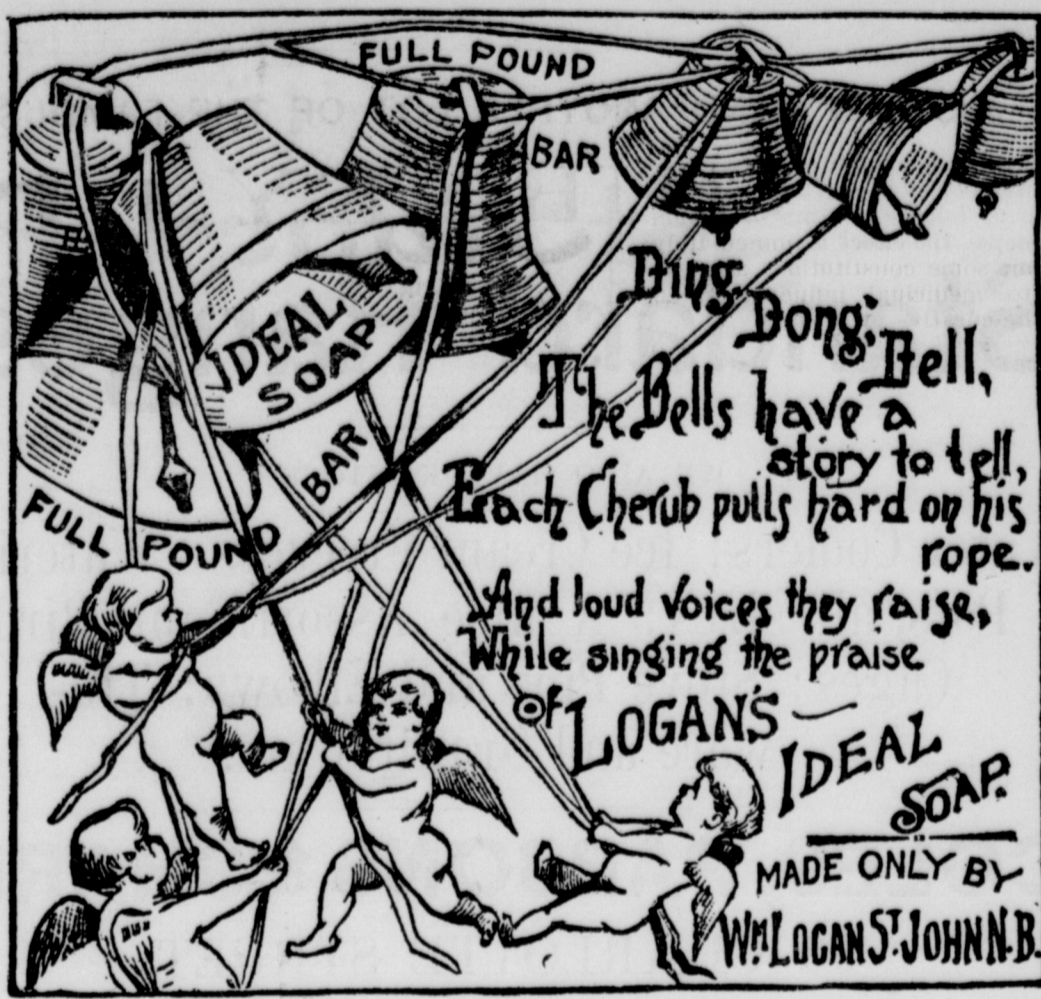 FULL POUND
BAR
IDEAL
SOAP
FULL POUND
BAR
Ding
Dong,
Dell,
The Bells have a
story to tell,
Each Cherub pulls hard on his
rope.
And loud voices they raise,
While singing the praise
of LOGAN'S —
IDEAL
SOAP.
MADE ONLY BY
WM LOGAN ST. JOHN N.B.